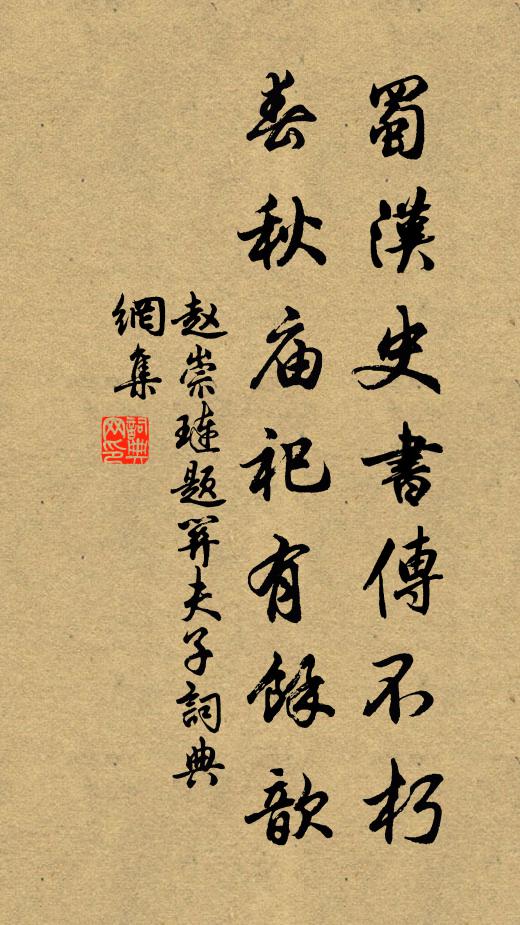 蜀漢史書傳不朽
春秋庙祀有餘歆
赵崇璉题关夫子詞典
網集
詞典网印